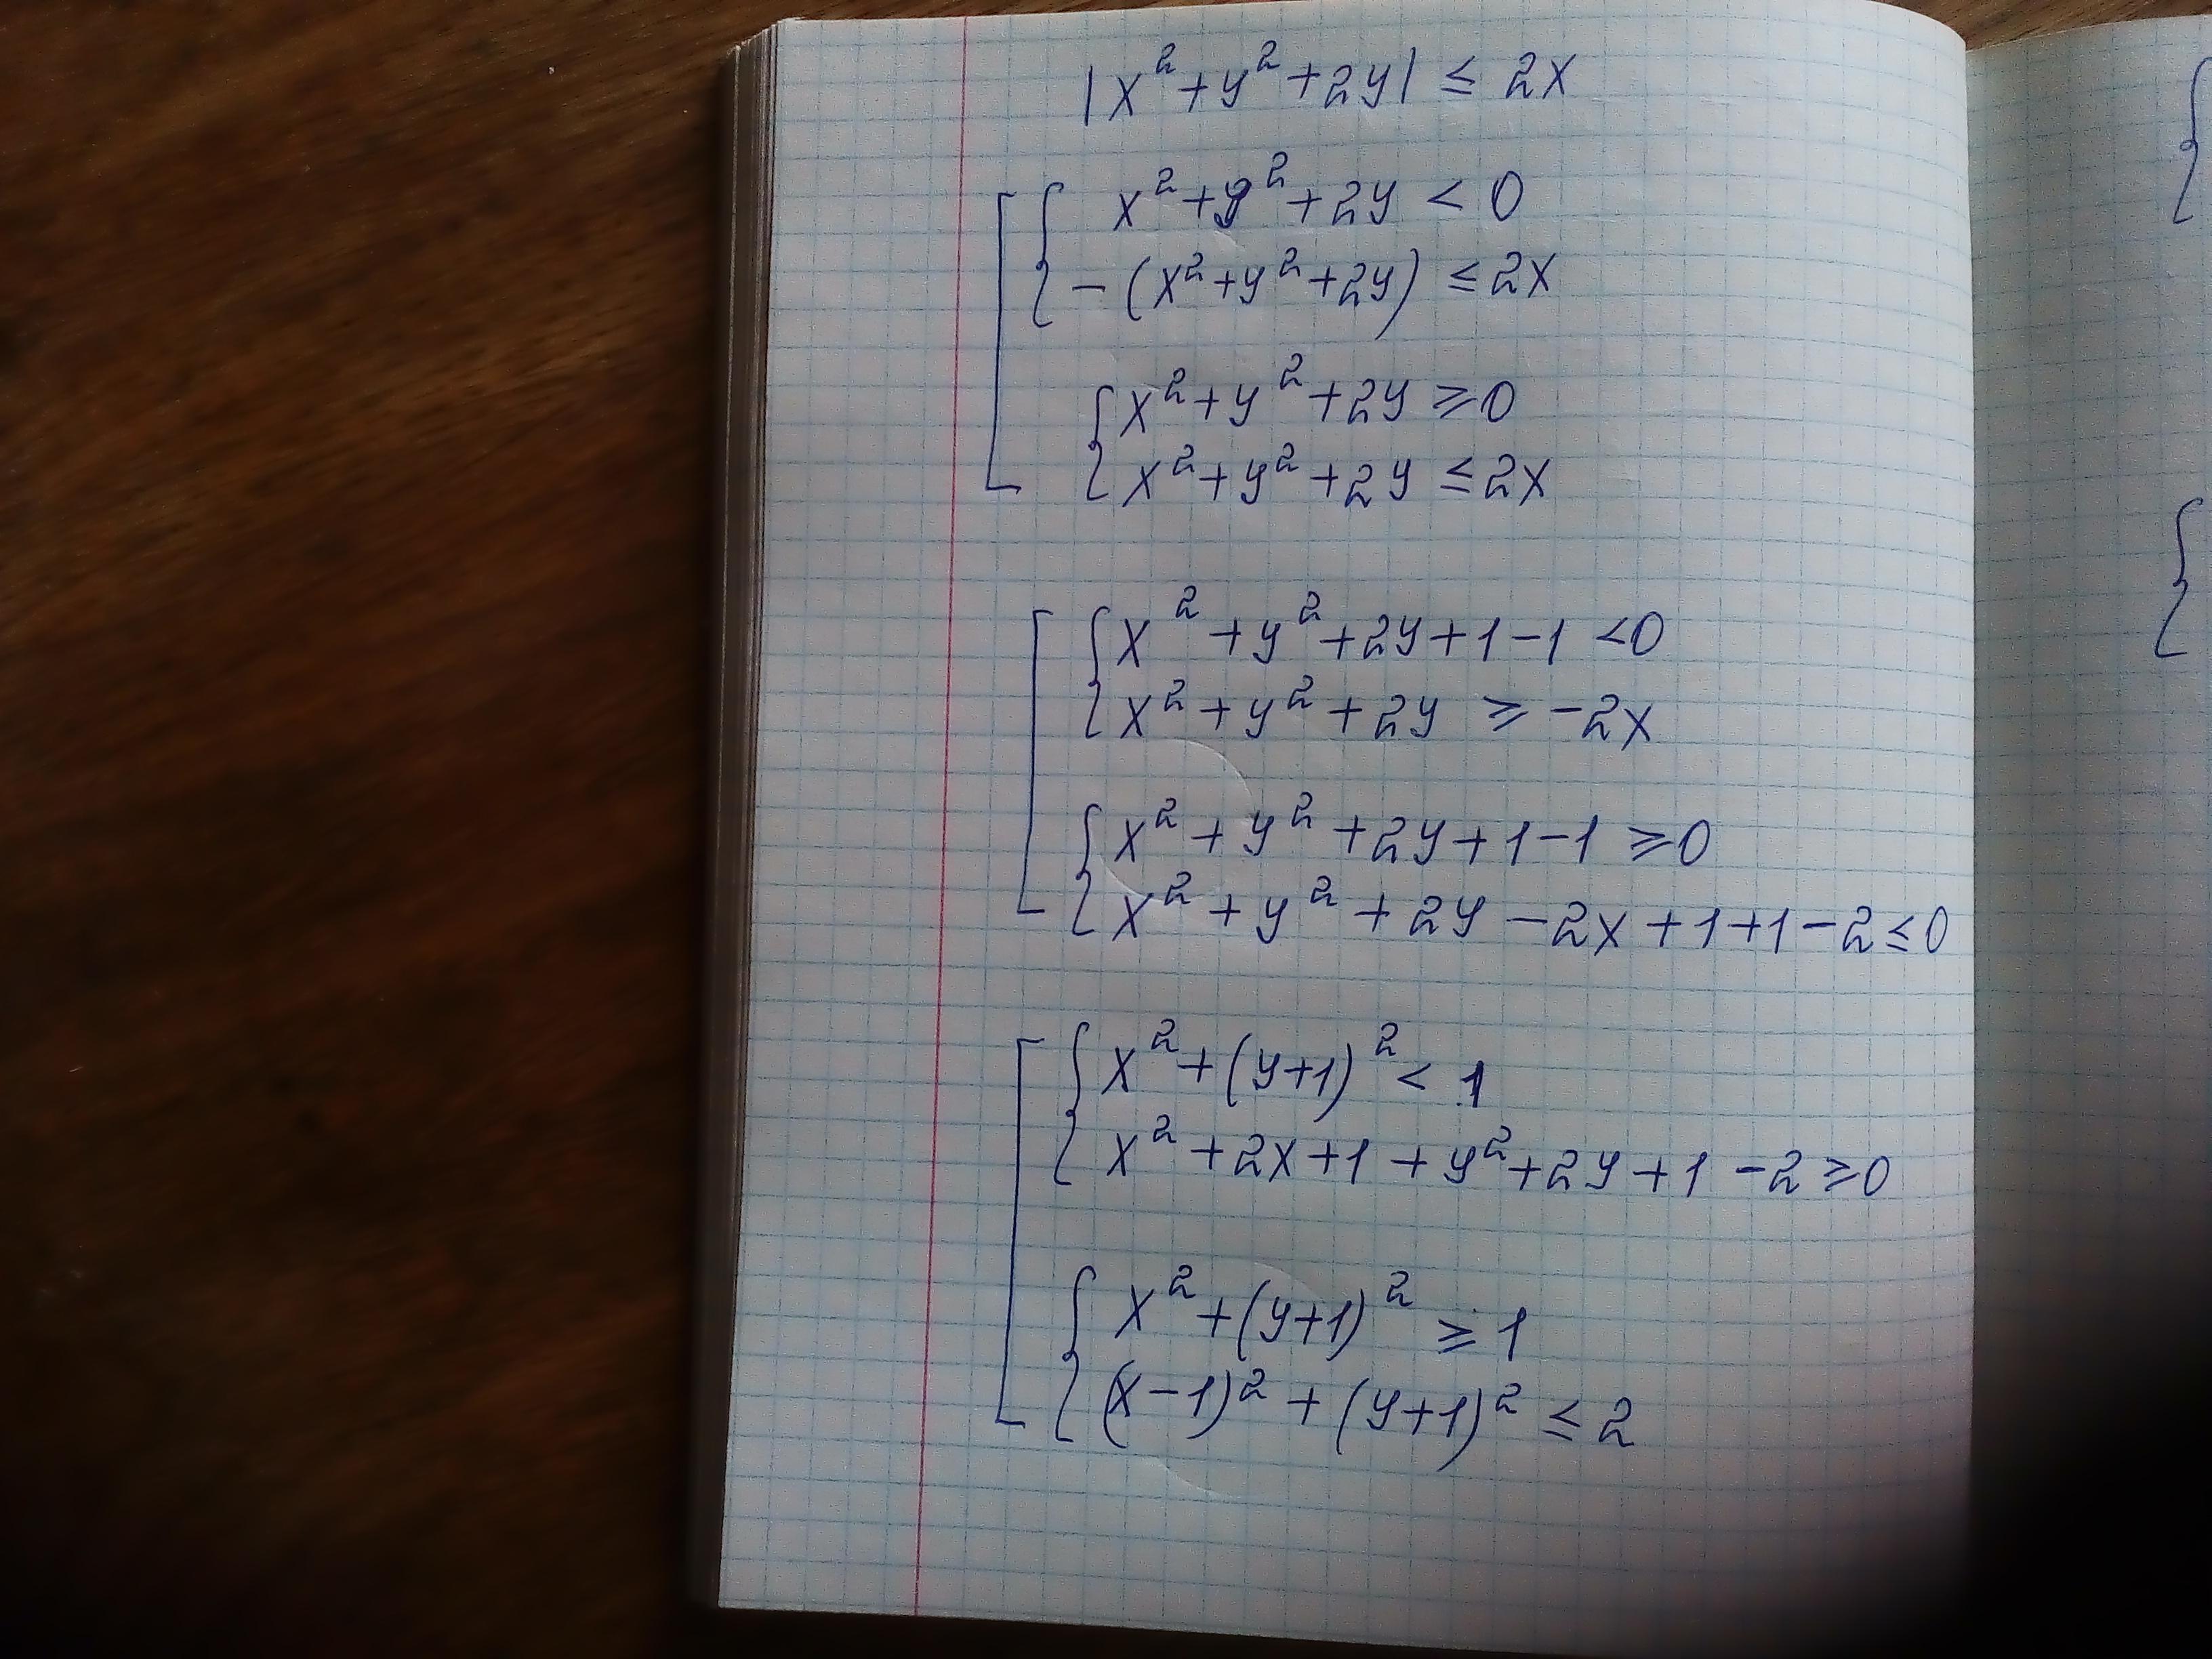 |x²+y²+2y| ≤ 2x
x²+y²+2y < 0
-(x²+y²+2y) ≤ 2x
x²+y²+2y ≥ 0
x²+y²+2y ≤ 2x
x²+y²+2y+1-1 < 0
x²+y²+2y ≥ -2x
x²+y²+2y+1-1 ≥ 0
x²+y²+2y-2x+1+1-2 ≤ 0
x²+(y+1)² < 1
x²+2x+1+y²+2y+1-2 ≥ 0
x²+(y+1)² ≥ 1
(x-1)²+(y+1)² ≤ 2